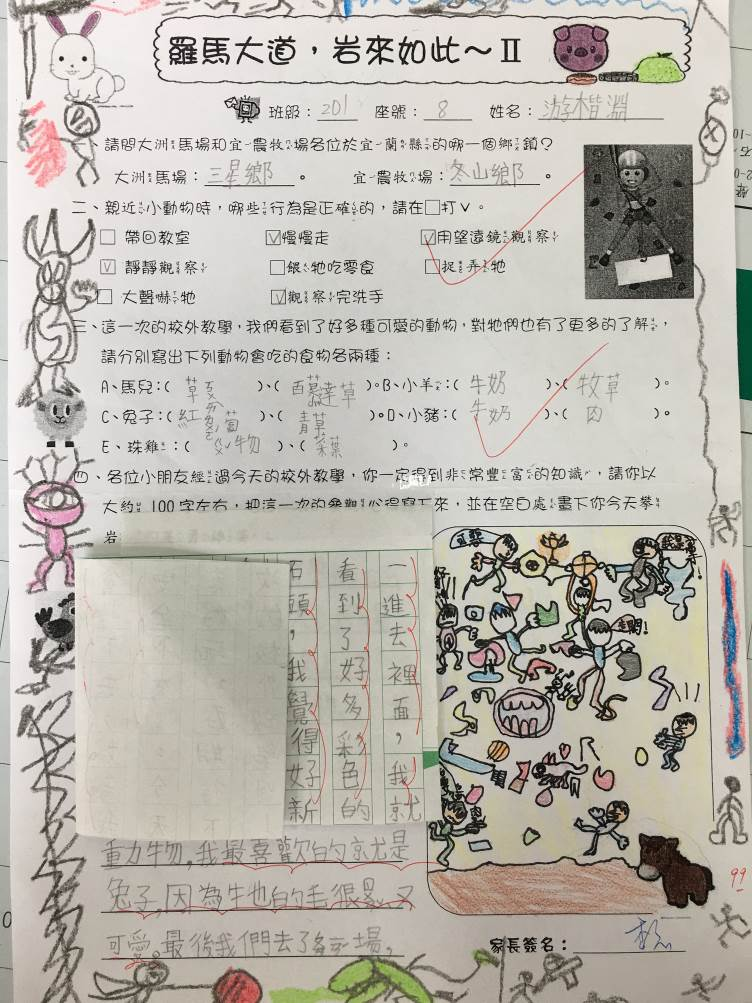 羅馬大道，岩來如此～Ⅱ
班級：201 座號：8 姓名：游楷淵
一、請問大洲馬場和宜農牧場各位於宜蘭縣的哪一個鄉鎮？
大洲馬場：三星鄉。 宜農牧場：冬山鄉。
二、親近小動物時，哪些行為是正確的，請在□打ˇ。
□ 帶回教室 ☑慢慢走 ☑用望遠鏡觀察
☑ 靜靜觀察 □餵牠吃零食 □捉弄牠
□ 大聲嚇牠 ☑觀察完洗手
三、這一次的校外教學，我們看到了好多種可愛的動物，對牠們也有了更多的了解，
請分別寫出下列動物會吃的食物各兩種：
A、馬兒：(草)、(百慕達草)。B、小羊：(牛奶)、(牧草)。
C、兔子：(紅蘿蔔)、(青草)。D、小豬：(牛奶)、(肉)。
E、珠雞：(ㄍㄨˇ物)、(菜葉)。
四、各位小朋友經過今天的校外教學，你一定得到非常豐富的知識，請你以
大約 100 字左右，把這一次的參觀心得寫下來，並在空白處畫下你今天攀
岩
一進去裡面，我就
看到了好多彩色的
石頭，我覺得好新
動物，我最喜歡的就是
兔子，因為牠的毛很多又
可愛。最後我們去了 場，
走開！
家長簽名：
99